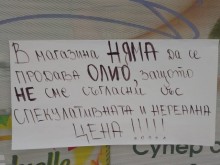 В магазина НЯМА да се
продава ОЛИО, защото
НЕ сме съгласни със
СПЕКУЛАТИВНАТА И НЕРЕАЛНА
ЦЕНА !!!!!
Супер